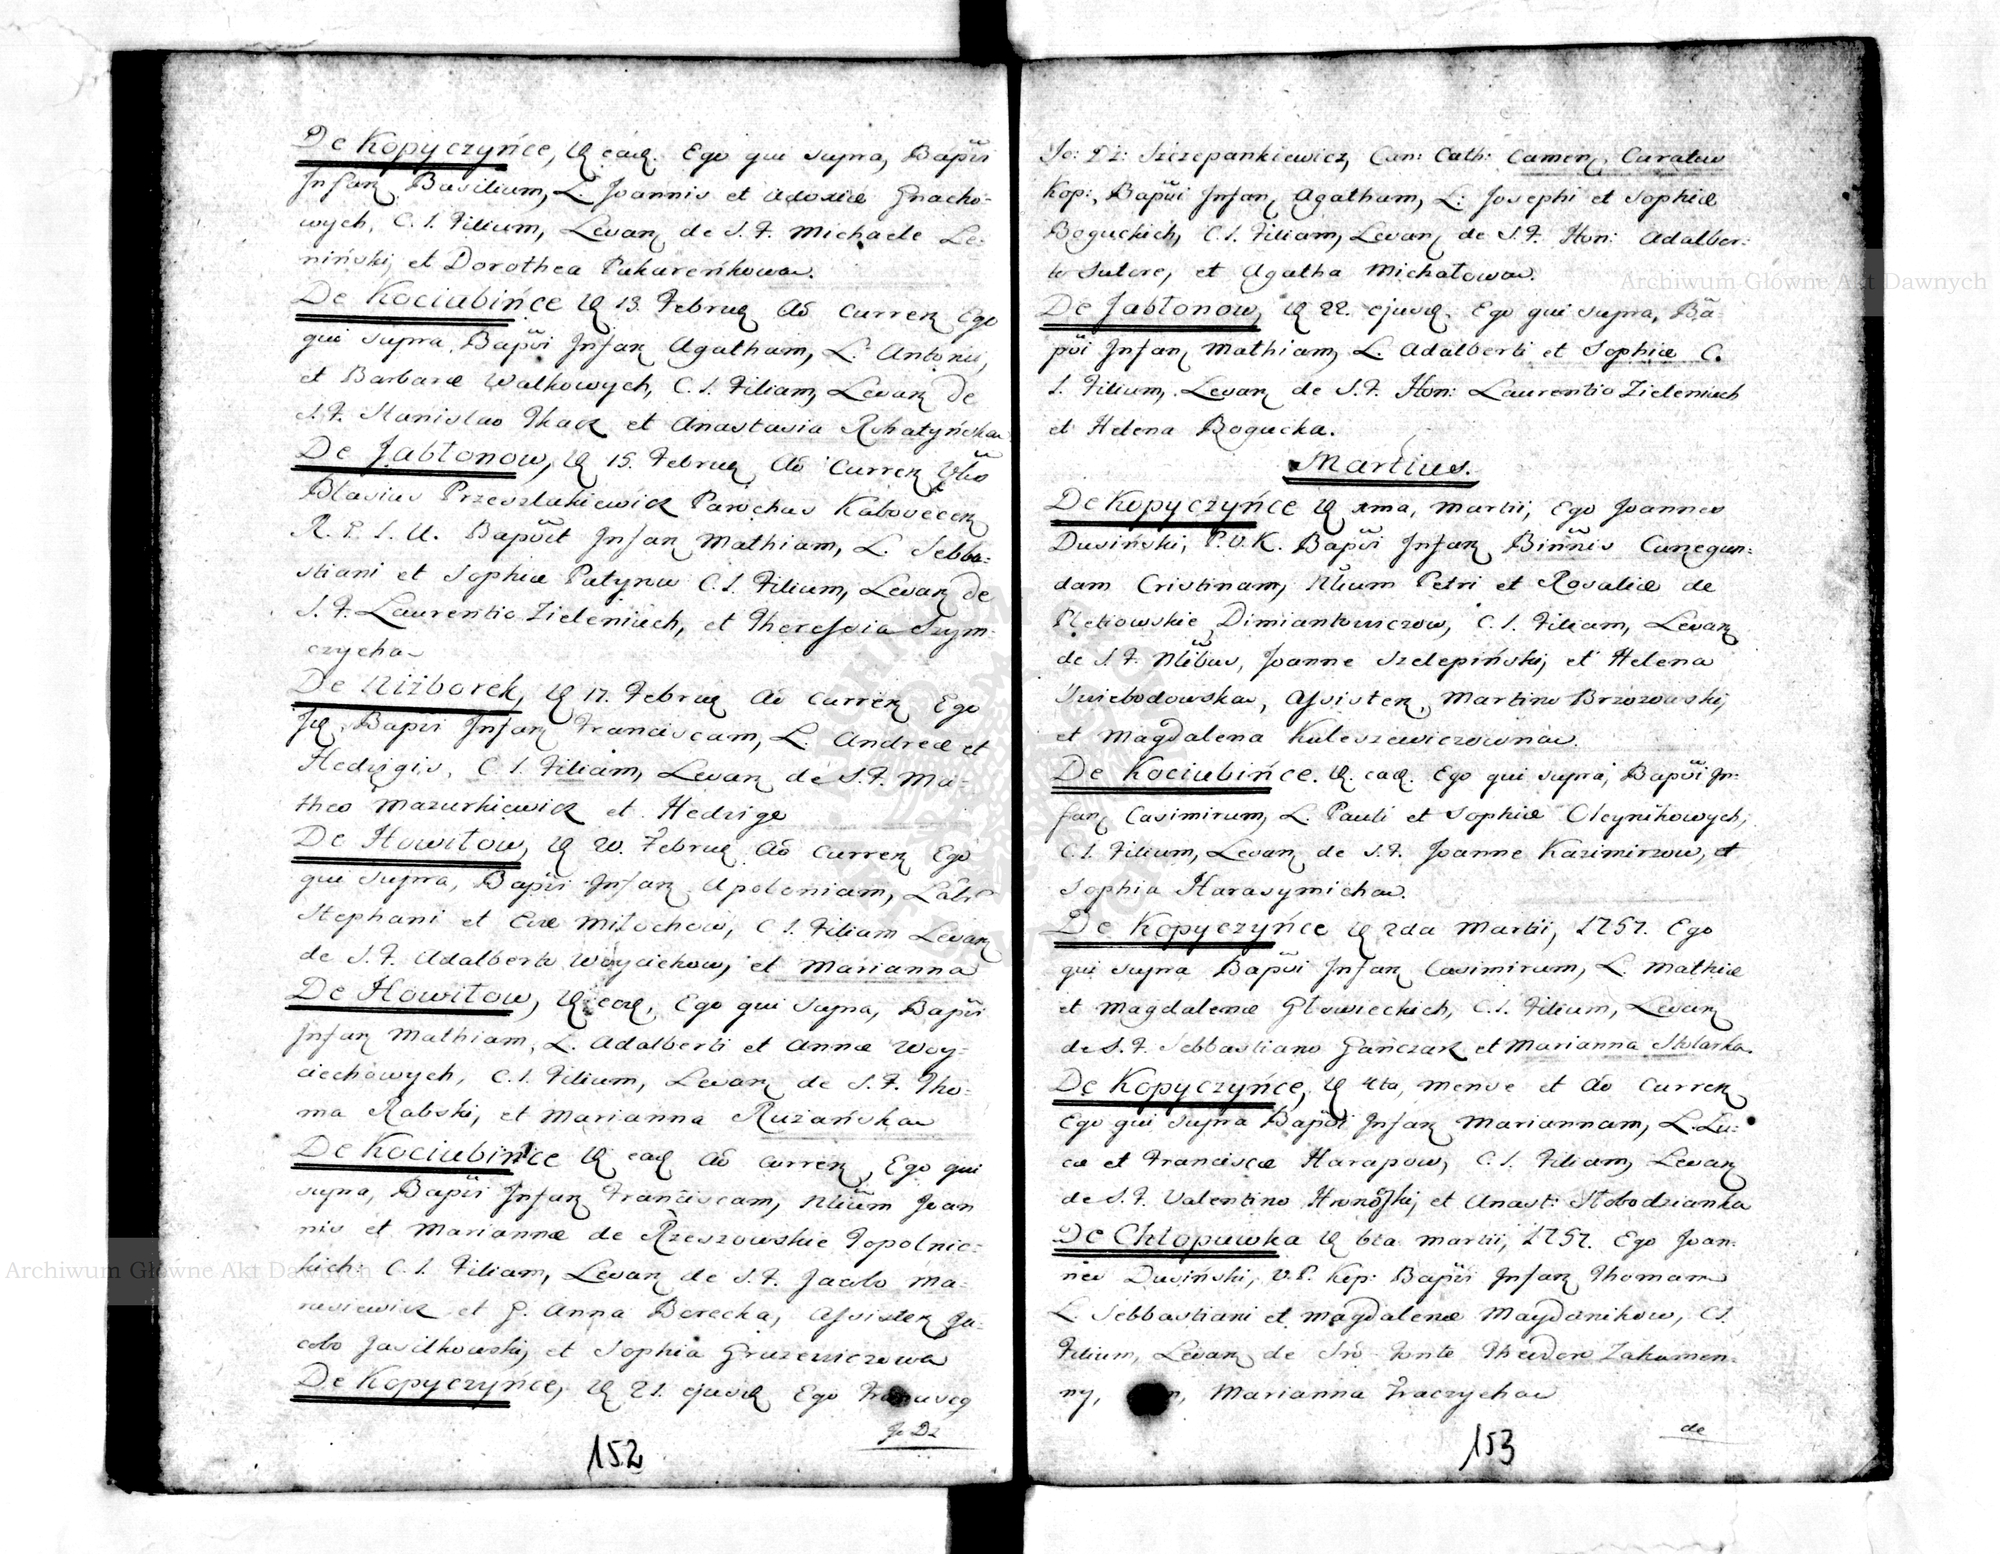 De Kopyczyńce, D ead. Ego qui supra, Bapti
Infan Basilium, L. Joannis et Adoxiæ Gnacho-
wych, C. I. Filium, Levan de S. F. Michaele Le-
niński, et Dorothea Pukareńkowa.
De Kociubińce D 13. Februa Ao Curren Ego
qui supra, Bapti Infan Agatham, L. Antonii,
et Barbaræ Walkowych, C. I. Filiam, Levan de
S. F. Stanislao Tkacz et Anastasia Rohatyńska
De Jabłonow, D 15. Februa Ao Curren
Blasius Przeszlakiewicz Parochus Kabovecen
R. P. S. U. Baptvit Infan Mathiam, L. Sebba-
stiani et Sophiæ Patyna C. I. Filium, Levan de
S. F. Laurentio Zieleniuch, et Theressia Szym-
czycha
De Niżborek, D 17. Februa Ao Curren Ego
Id, Bapti Infan Franciscam, L. Andreæ et
Hedvigis, C. I. Filiam, Levan de S. F. Ma-
theo Mazurkiewicz et Hedvige
De Howiłow, D 20. Februa Ao Curren Ego
qui supra, Bapti Infan Apoloniam, Lab
Stephani et Evæ Miłochow, C. I. Filiam Levan
de S. F. Adalberto Woyciechow, et Marianna
De Howiłow, D ead, Ego qui supra, Bapti
Infan Mathiam, L. Adalberti et Annæ Woy-
ciechowych, C. I. Filium, Levan de S. F. Tho-
ma Rabski, et Marianna Rużańska
De Kociubińce D ead Ao curren, Ego qui
supra, Bapti Infan Franciscam, Nlium Joan
nis et Mariannæ de Rzeszowskie Topolnic-
kich: C. I. Filiam, Levan de S. F. Jacobo Ma-
rusiewicz et G. Anna Borecka, Assisten Ja-
cobo Jasilkowski, et Sophia Gruzewiczowa
De Kopyczyńce, D 21. ejusd Ego
Jo Dz
152
Jo: Dz: Szczepankiewicz, Can: Cath: Camen, Curatus
Kop:, Baptvi Infan Agatham, L: Josephi et Sophiæ
Boguckich, C. I. Filiam, Levan de S. F. Hon: Adalber-
to Sutore, et Agatha Michałowa.
De Jabłonow, D 22. ejusd. Ego qui supra, Ba-
ptvi Infan Mathiam, L. Adalberti et Sophiæ C.
I. Filium, Levan de S. F. Hon: Laurentio Zieleniuch
et Helena Bogucka.
Martius.
De Kopyczyńce D 1ma, Martii, Ego Joannes
Dusiński, P. V. K. Baptvi Infan Biññis Cunegun-
dam Cristinam, Nlium Petri et Rosaliæ de
Pletiowskie Dimiantowiczow, C. I. Filiam, Levan
de S. F. Nlibus, Joanne Szelepiński, et Helena
Swiebodowska, Assisten, Martino Brzozowski,
et Magdalena Kuleszewiczowna.
De Kociubińce. D. ead. Ego qui supra, Baptvi In-
fan Casimirum, L. Pauli et Sophiæ Oleynikowych,
C. I. Filium, Levan de S. F. Joanne Kazimirzow, et
Sophia Harasymicha.
De Kopyczyńce D 2da Martii, 1757. Ego
qui supra Baptvi Infan Casimirum, L. Mathiæ
et Magdalenæ Głowieckich, C. I. Filium, Levan
de S. F. Sebbastiano Gańczar et Marianna Stolarka.
De Kopyczyńce, D 4ta, mense et Ao Curren
Ego qui supra Baptvi Infan Mariannam, L. Lu-
cæ et Franciscæ Harapow, C. I. Filiam, Levan
de S. F. Valentino Hronosski, et Anast: Słobodzianka
De Chłopuwka D 6ta martii, 1757. Ego Joan-
nes Dusiński, V. P. Kop: Bapti Infan Thomam
L. Sebbastiani et Magdalenæ Maydanikow, C. I.
Filium, Levan de Sro Fonte Theodoro Zakamen-
ny, Marianna Tkaczycha
de
153
Archiwum Główne Akt Dawnych
Archiwum Główne Akt Dawnych